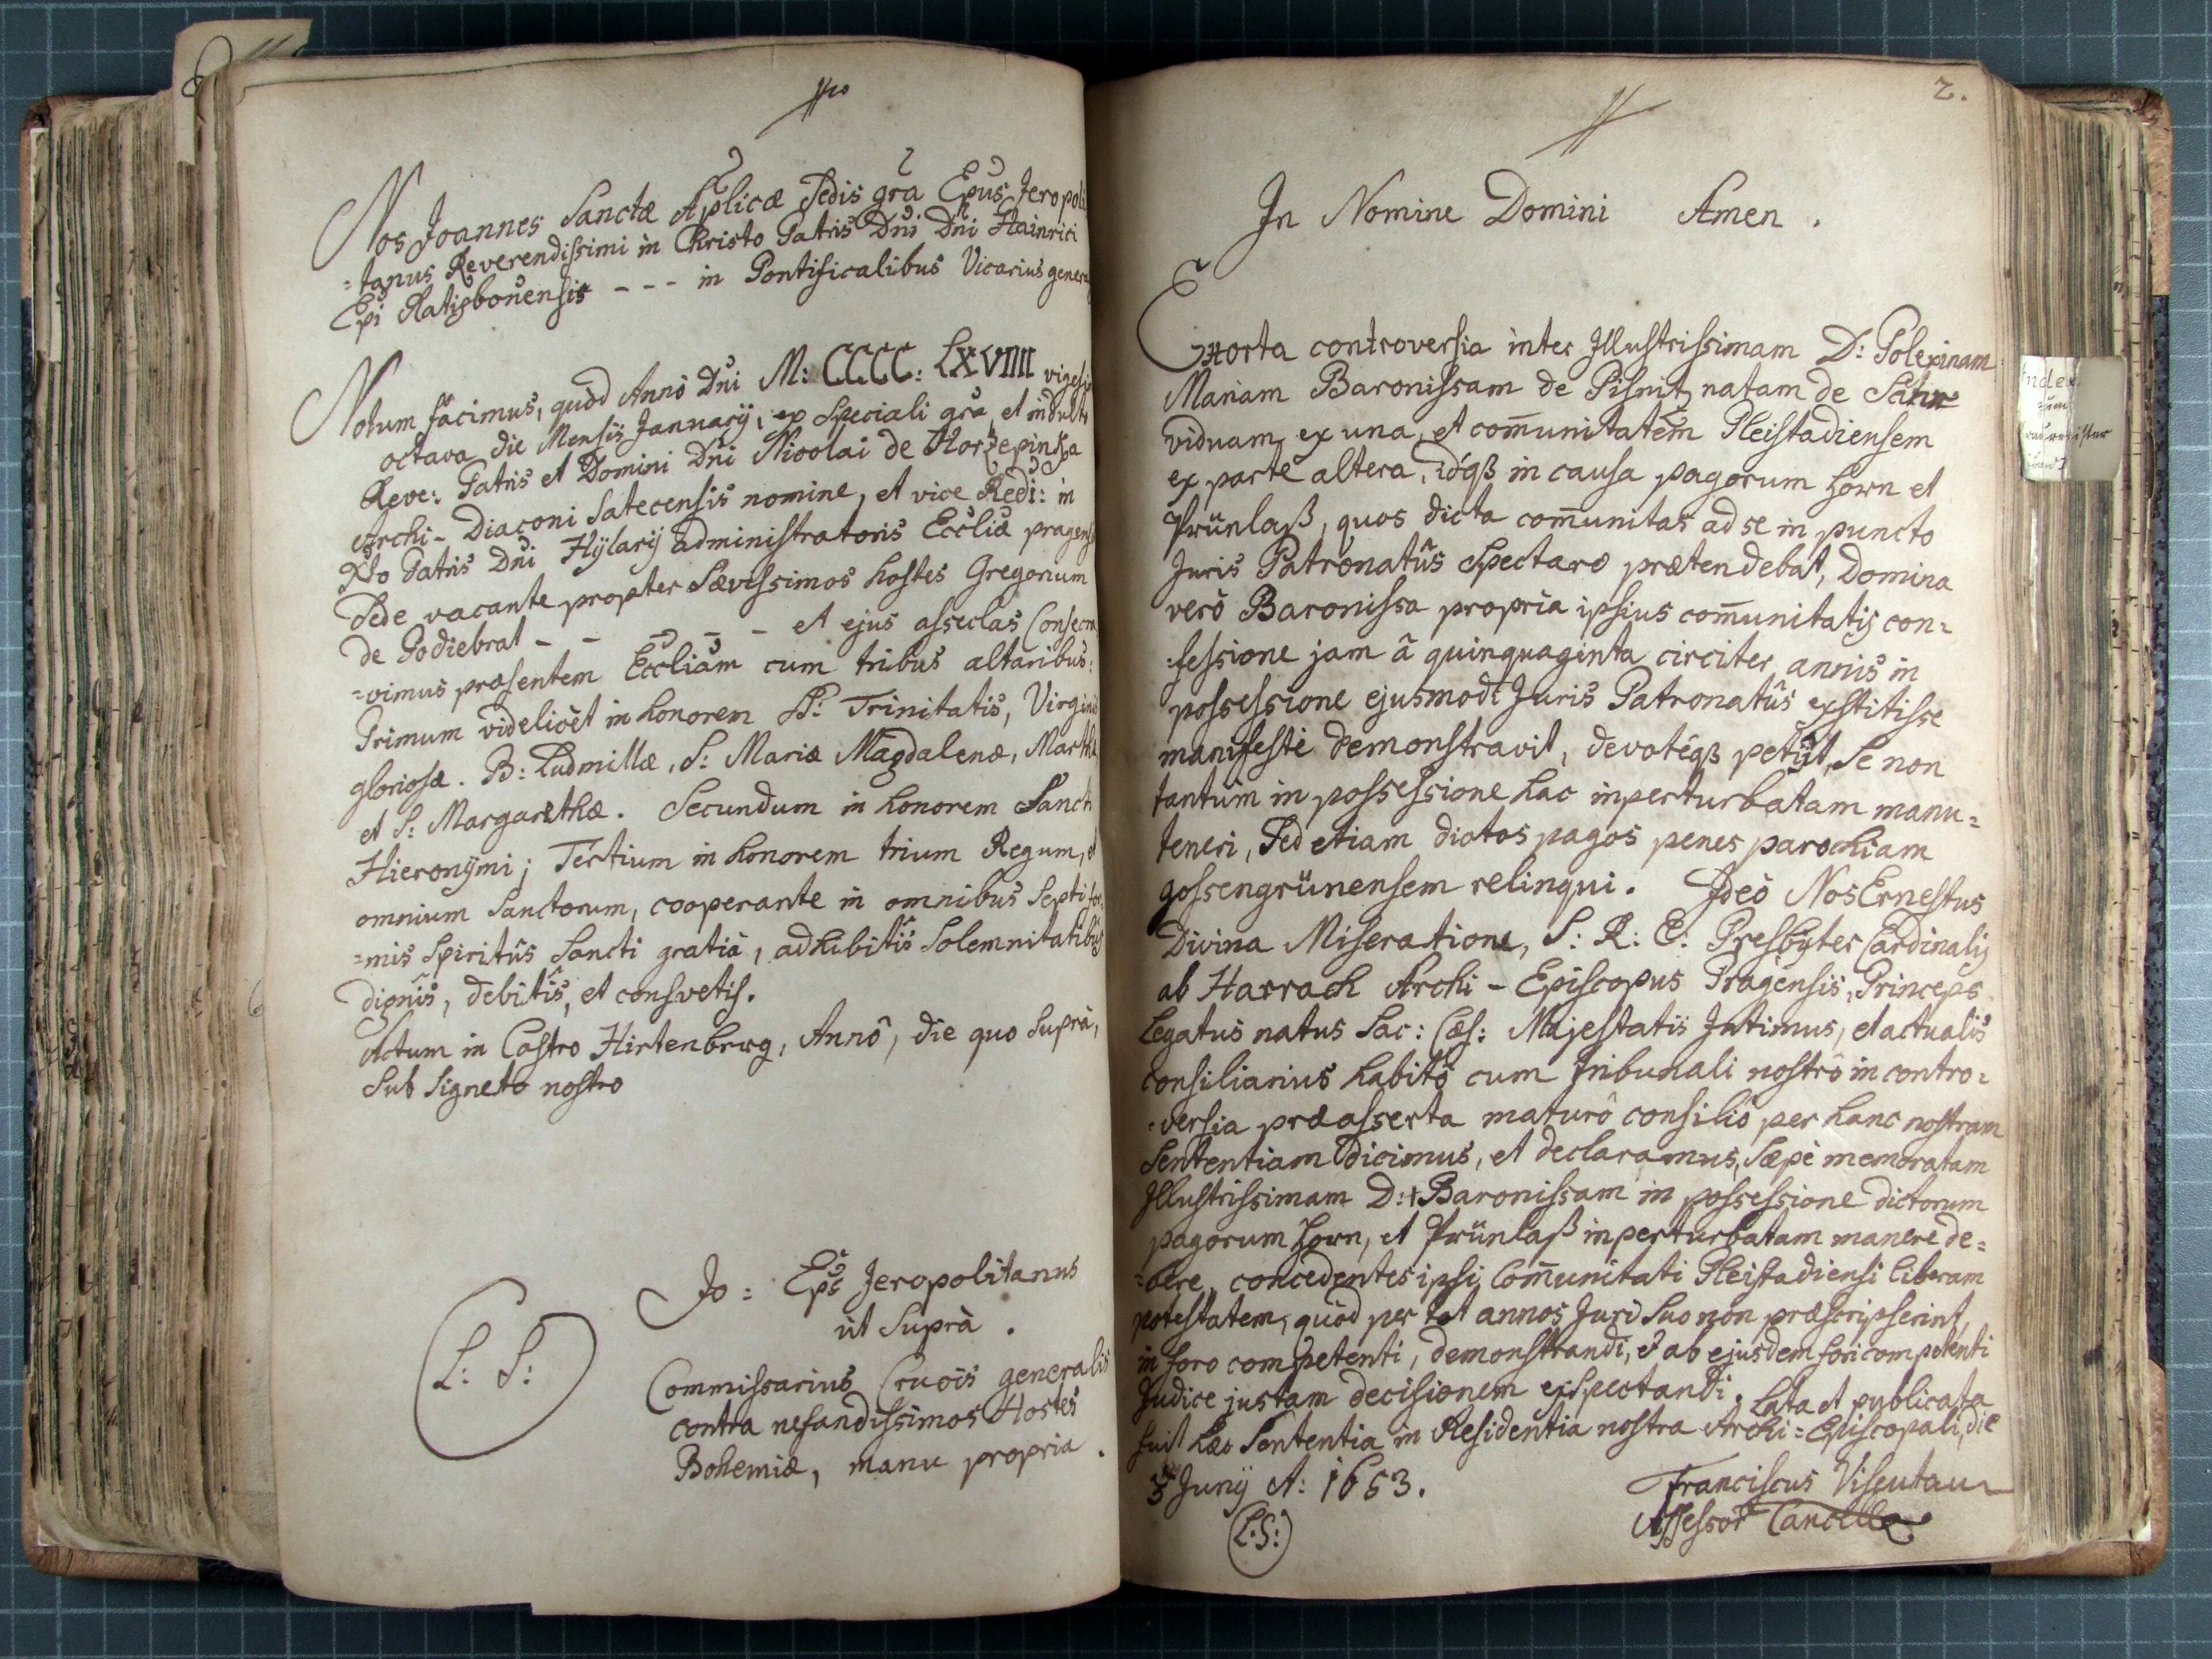 Nos Joannes Sanctæ Aplicæ Sedis gra Epus Jeropoli
=tanus Reverendissimi in Christo Patris Dni Dni Hainrici
Epi Ratisbonensis - - - in Pontificalibus Vicarius genera
Notum facimus, quod Annô Dni M: CCCC: LXVIIII vigesi
octava die Mensis Januarÿ, ex Speciali gra, et indulto
Reve: Patris et Domini Dni Nicolai de Horzepinka
Archi-Diaconi Satecensis nomine, et vice Redi: in
Xto Patris Dni Hÿlarÿ administratoris Eccliæ pragens
Sede vacante propter Sævissimos hostes Gregorium
de Podiebrat - - - - - et ejus asseclas Consecra
=vimus præsentem Eccliam cum tribus altaribus:
Primum videlicèt in honorem SS: Trinitatis, Virginis
gloriosæ. B: Ludmillæ, S: Mariæ Magdalenæ, Marthæ
et S: Margarethæ. Secundum in honorem Sancti
Hieronÿmi; Tertium in honorem trium Regum, et
omnium Sanctorum, cooperante in omnibus Septifor:
=mis Spiritûs Sancti gratiâ, adhibitis Solemnitatibus
dignis, debitis, et consvetis.
Actum in Castro Hirtenberg, Annô, die quo Suprà,
Sub Signeto nostro
Jo: Eps Jeropolitanus
ut Suprà.
L: S:
Commissarius Crucis generalis
contra nefandissimos Hostes
Bohemiæ, manu propria.
2.
In Nomine Domini Amen.
Exorta controversia inter Illustrissimam D: Polexinam
Mariam Baronissam de Pisnitz natam de
viduam, ex una, et com̄unitatem Pleistadiensem
ex parte altera, idqß in causa pagorum Horn et
Prünlaß, quos dicta com̄unitas ad se in puncto
Juris Patronatûs Spectare prætendebat, Domina
verò Baronissa propria ipsius com̄unitatis con=
=fessione jam â quinquaginta circiter annis in
possessione ejusmodi Juris Patronatûs exstitisse
manifestè demonstravit, devotéqß petijt, Se non
tantùm in possessione hac inperturbatam manu=
teneri, Sed etiam dictos pagos penes parochiam
gossengrünensem relinqui. Ideò Nos Ernestus
Divina Miseratione, S: R: E: Presbyter Cardinalis
ab Harrach Archi-Episcopus Pragensis, Princeps
Legatus natus Sac: Cæs: Majestatis Intimus, et actualis
Consiliarius habitô cum Tribunali nostrô in contro=
=versia præasserta maturô consiliô per hanc nostram
Sententiam dicimus, et declaramus, Sæpè memoratam
Illustrissimam D: Baronissam in possessione dictorum
pagorum Horn, et Prünlaß inperturbatam manere de=
=bere, concedentes ipsi Com̄unitati Pleistadiensi liberam
potestatem, quòd per tot annos Juri Suo non præscripserint,
in foro competenti, demonstrandi, & ab ejusdem fori competenti
Judice justam decisionem exspectandi. Lata et publicata
fuit hæc Sententia in Residentia nostra Archi=Episcopali, die
Junÿ A: 1653.
Franciscus
Assessor
L:S:
Index
zum